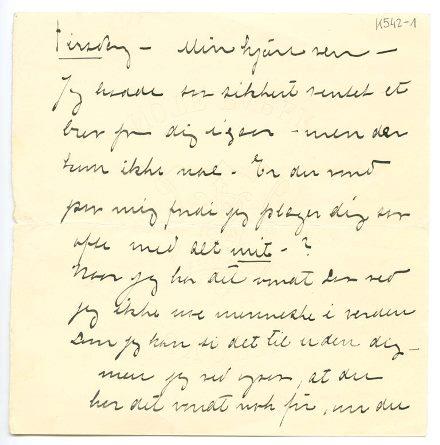 K542-1
Tirsdag – Min kjære ven –
Jeg hadde saa sikkert ventet et
brev fra dig igaar – men der
kom ikke noe – Er du vond
paa mig, fordi jeg plager dig saa
ofte med det mit – ?
Naar jeg har det vondt saa ved
jeg ikke noe menneske i verden
som jeg kan si det til uden dig –
men jeg ved ogsaa, at du
har det vondt nok før, om du